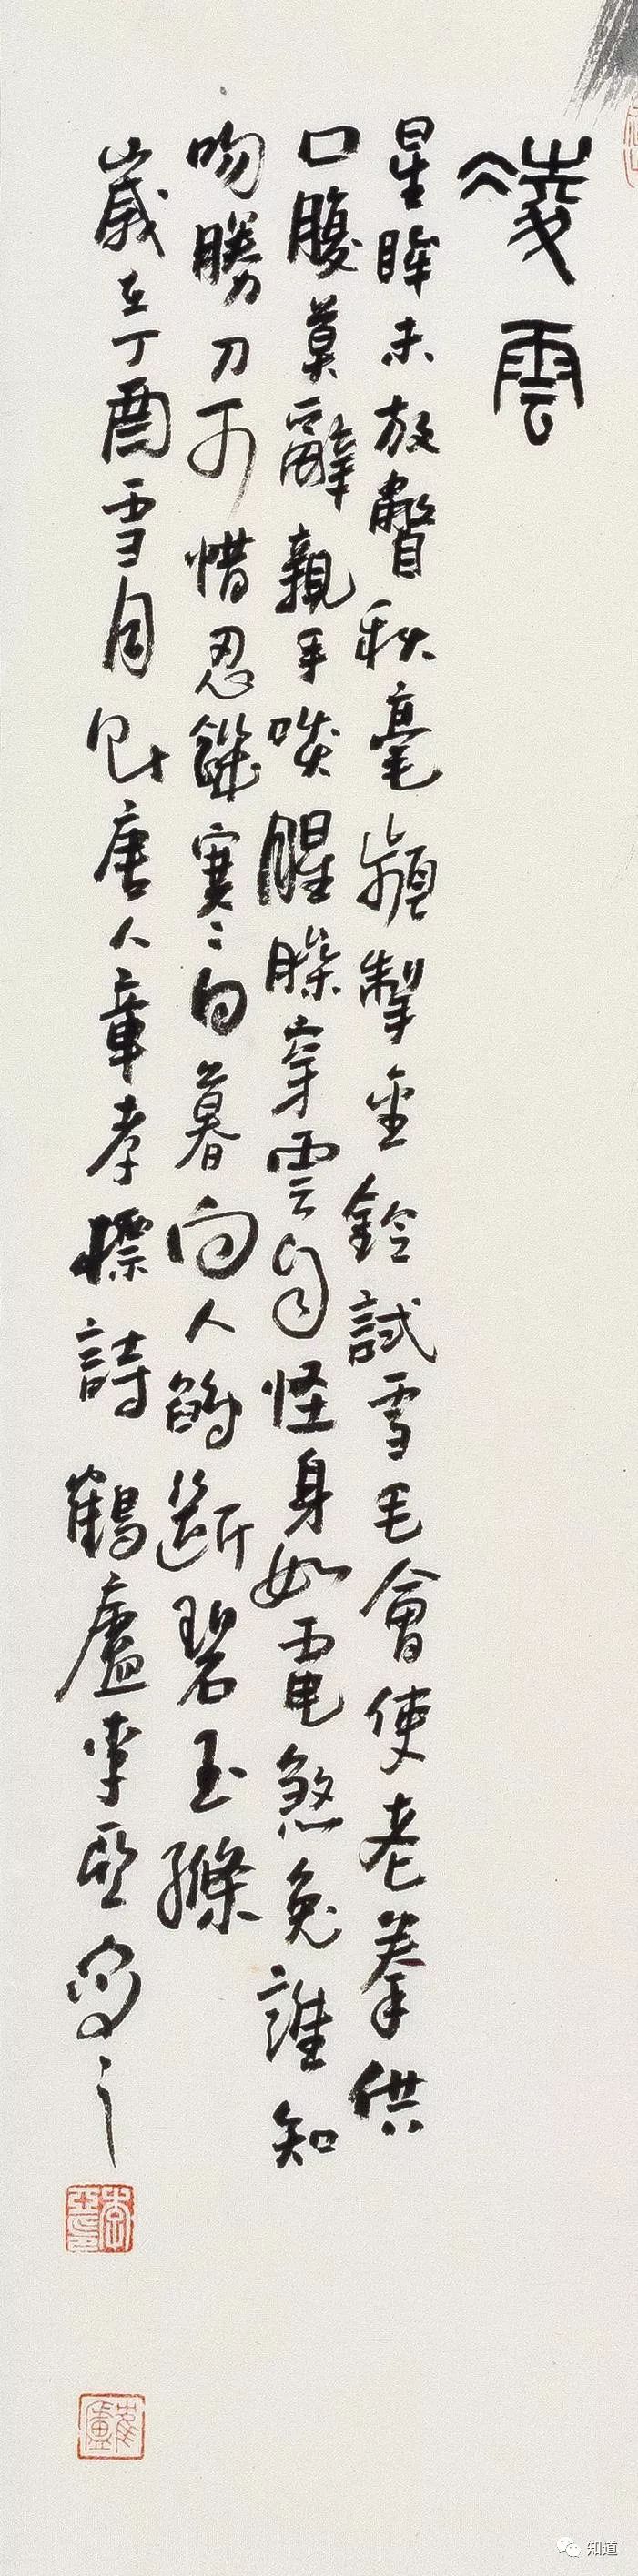 凌雲
星眸未放瞥秋毫頻掣金鈴試雪毛會使老拳供
口腹莫辭親手啖腥臊穿雲自怪身如電煞兔誰知
吻勝刀可惜忍饑寒〻日暮向人鵮斷碧玉絛
歲在丁酉雪月以唐人章孝標詩 鶴廬李亞寫之
鶴廬
知道